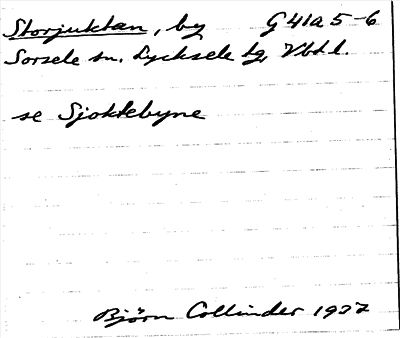 Storjuktan, by G 41a 5-6
Sorsele sn. Lycksele tg, Vbtl.
se Sjokkebyne
Björn Collinder 1937